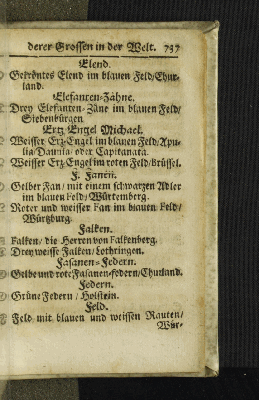 derer Grossen in der Welt. 737
Elend.
Gekröntes Elend im blauen Feld/Chur-
land.
Elefanten-Zähne.
Drey Elefanten-Zäne im blauen Feld/
Siebenbürgen.
Ertz-Engel Michael.
Weisser Ertz-Engel im blauen Feld/Apu-
lia Daunia oder Capitanata.
Weisser Ertz-Engel im roten Feld/Brüssel.
F. Fanen.
Gelber Fan/ mit einem schwartzen Adler
im blauen Feld/ Würtemberg.
Roter und weisser Fan im blauen Feld/
Würtzburg.
Falken.
Falken/ die Herren von Falkenberg.
Drey weisse Falken/ Lothringen.
Fasanen-Federn.
Gelbe und rote Fasanen-federn/Churland.
Federn.
Grüne Federn/ Holstein.
Feld.
Feld mit blauen und weissen Rauten/
Wür-